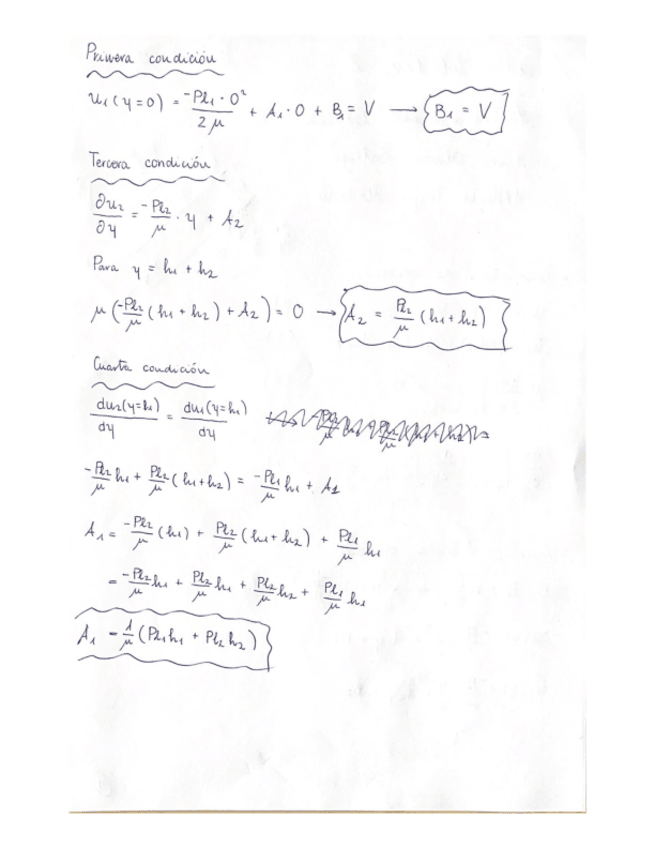 Primera condición
u₁(y=0) = -Pl₁·0²/2μ + A₁·0 + B₁ = V → B₁ = V
Tercera condición
∂u₂/∂y = -Pl₂/μ · y + A₂
Para y = h₁ + h₂
μ(-Pl₂/μ (h₁+h₂) + A₂) = 0 → A₂ = Pl₂/μ (h₁+h₂)
Cuarta condición
du₂(y=h₁)/dy = du₁(y=h₁)/dy
-Pl₂/μ h₁ + Pl₂/μ (h₁+h₂) = -Pl₁/μ h₁ + A₁
A₁ = -Pl₂/μ (h₁) + Pl₂/μ (h₁+h₂) + Pl₁/μ h₁
= -Pl₂/μ h₁ + Pl₂/μ h₁ + Pl₂/μ h₂ + Pl₁/μ h₁
A₁ = 1/μ (Pl₁h₁ + Pl₂h₂)